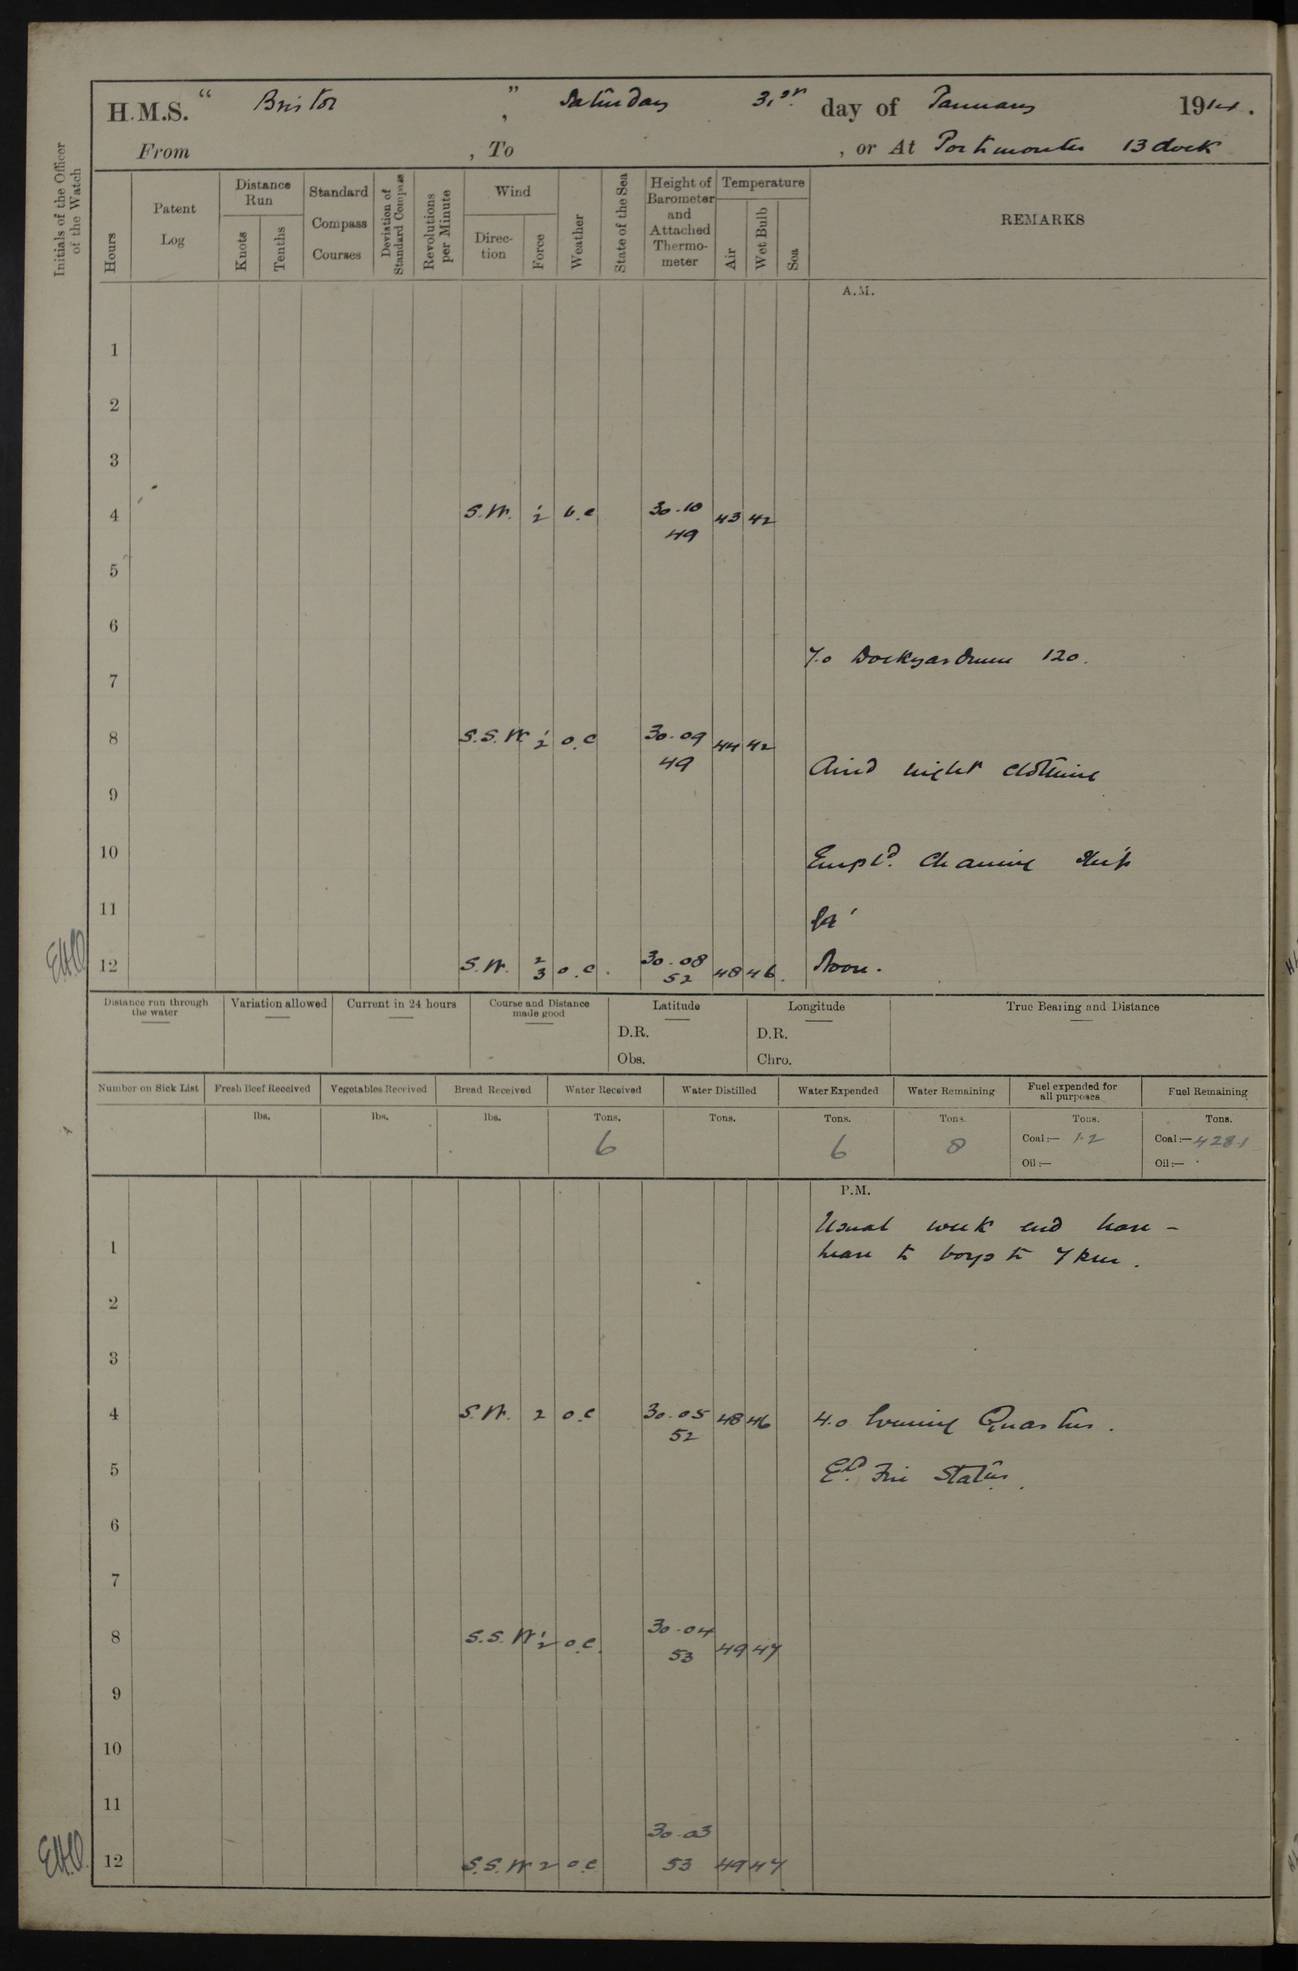 H.M.S. “ Bristol ”, Saturday 31st day of January 1914.
From , To , or At Portsmouth 13 dock
Initials of the Officer of the Watch
Hours
Patent Log
Distance Run
Knots
Tenths
Standard Compass Courses
Deviation of Standard Compass
Revolutions per Minute
Wind
Direction
Force
Weather
State of the Sea
Height of Barometer and Attached Thermometer
Temperature
Air
Wet Bulb
Sea
REMARKS
A.M.
1
2
3
4 S.W. 1/2 b.c 30.10 49 43 42
5
6
7.0 Dockyardmen 120.
7
8 S.S.W 1/2 o.c 30.09 49 44 42
Aired night clothing
9
10 Empld. Cleaning Ship
11
12 S.W. 2/3 o.c. 30.08 52 48 46. Noon.
EHO
Distance run through the water
Variation allowed
Current in 24 hours
Course and Distance made good
Latitude
D.R.
Obs.
Longitude
D.R.
Chro.
True Bearing and Distance
Number on Sick List
Fresh Beef Received lbs.
Vegetables Received lbs.
Bread Received lbs.
Water Received Tons. 6
Water Distilled Tons.
Water Expended Tons. 6
Water Remaining Tons. 8
Fuel expended for all purposes Tons. Coal:— 1.2 Oil:—
Fuel Remaining Tons. Coal:— 428.1 Oil:—
P.M.
Usual week end leave -
1 leave to boys to 7 p.m.
2
3
4 S.W. 2 o.c 30.05 52 48 46 4.0 Evening Quarters.
5 Ed. Fire Stations.
6
7
8 S.S.W 1/2 o.c. 30.04 53 49 47
9
10
11
12 S.S.W 2 o.c 30.03 53 49 47
EHO